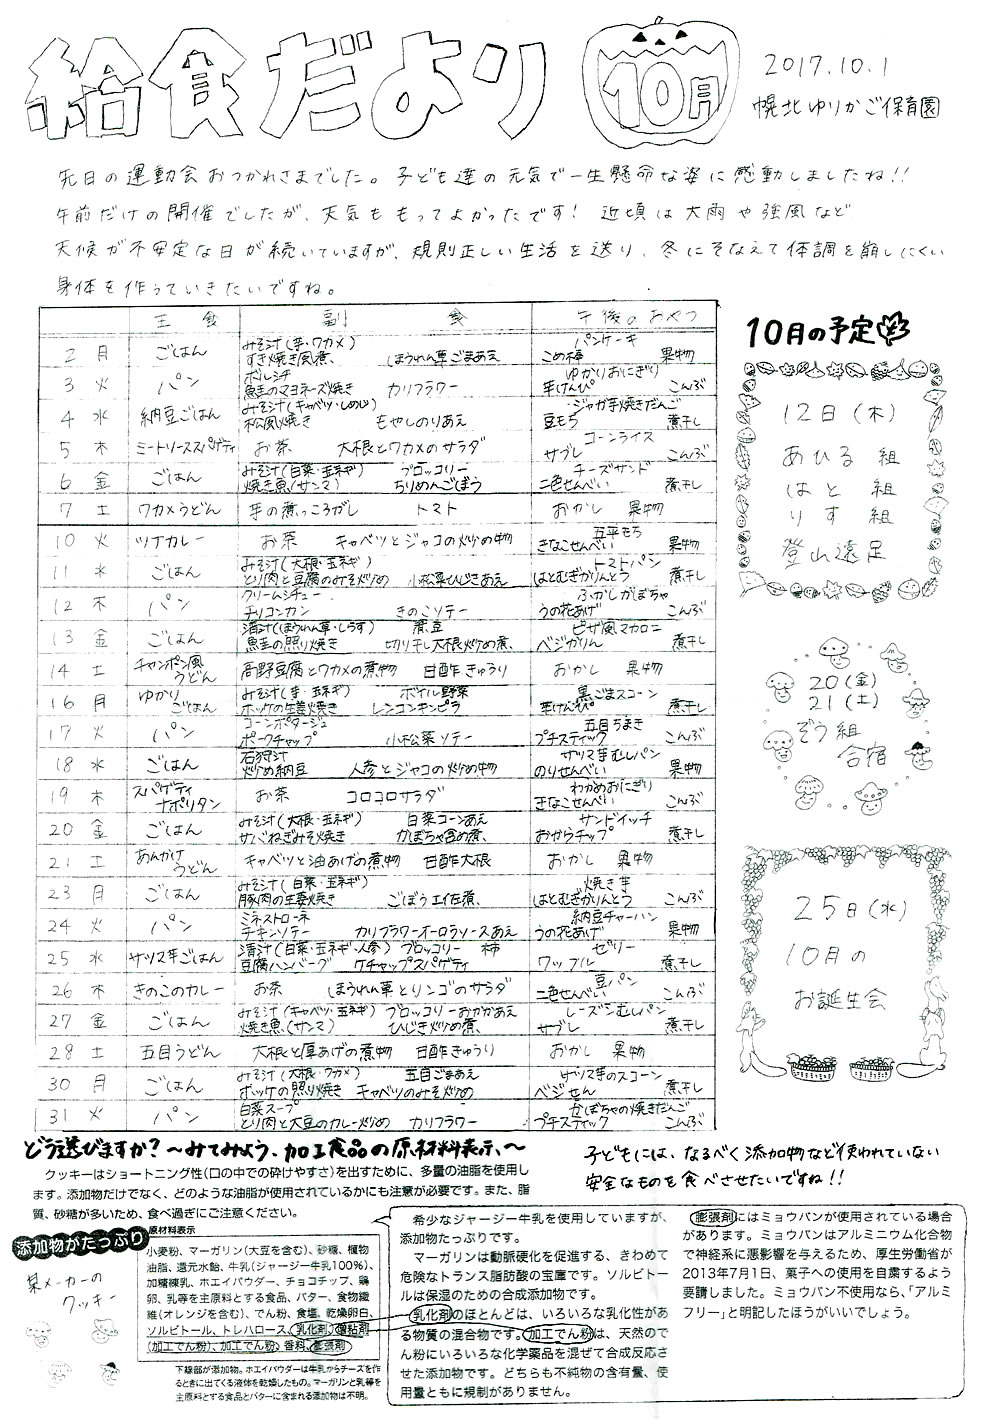 給食だより
10月
2017.10.1
幌北ゆりかご保育園
先日の運動会おつかれさまでした。子ども達の元気で一生懸命な姿に感動しましたね!!
午前だけの開催でしたが、天気ももってよかったです! 近頃は大雨や強風など
天候が不安定な日が続いていますが、規則正しい生活を送り、冬にそなえて体調を崩しにくい
身体を作っていきたいですね。
主食 副食 午後のおやつ
2 月 ごはん みそ汁(芋・ワカメ) すき焼き風煮、 ほうれん草ごまあえ パンケーキ こめ棒 果物
3 火 パン ボルシチ 魚圭のマヨネーズ焼き カリフラワー ゆかりおにぎり 芋けんぴ こんぶ
4 水 納豆ごはん みそ汁(キャベツ・しめじ) 松風焼き もやしのりあえ ジャガ芋焼きだんご 豆もち 煮干し
5 木 ミートソーススパゲティ お茶 大根とワカメのサラダ コーンライス サブレ こんぶ
6 金 ごはん みそ汁(白菜・玉ネギ) ブロッコリー 焼き魚(サンマ) ちりめんごぼう チーズサンド 二色せんべい 煮干し
7 土 ワカメうどん 芋の煮っころがし トマト おかし 果物
10 火 ツナカレー お茶 キャベツとジャコの炒め物 五平もち きなこせんべい 果物
11 水 ごはん みそ汁(大根・玉ネギ) とり肉と豆腐のみそ炒め 小松菜ひじきあえ トマトパン はとむぎかりんとう 煮干し
12 木 パン クリームシチュー チリコンカン きのこソテー ふかしかぼちゃ うの花あげ こんぶ
13 金 ごはん 清汁(ほうれん草・しらす) 煮豆 魚圭の照り焼き 切り干し大根炒め煮、 ピザ風マカロニ ベジかりん 煮干し
14 土 チャンポン風うどん 高野豆腐とワカメの煮物 甘酢きゅうり おかし 果物
16 月 ゆかりごはん みそ汁(芋・玉ネギ) ボイル野菜 ホッケの生姜焼き レンコンキンピラ 黒ごまスコーン 芋けんぴ 煮干し
17 火 パン コーンポタージュ ポークチャップ 小松菜ソテー 五目ちまき プチスティック こんぶ
18 水 ごはん 石狩汁 炒め納豆 人参とジャコの炒め物 サツマ芋むしパン のりせんべい 果物
19 木 スパゲティナポリタン お茶 コロコロサラダ わかめおにぎり きなこせんべい こんぶ
20 金 ごはん みそ汁(大根・玉ネギ) 白菜コーンあえ サバねぎみそ焼き かぼちゃ含め煮、 サンドイッチ おからチップ 煮干し
21 土 あんかけうどん キャベツと油あげの煮物 甘酢大根 おかし 果物
23 月 ごはん みそ汁(白菜・玉ネギ) 豚肉の生姜焼き ごぼう土佐煮、 焼き芋 はとむぎかりんとう こんぶ
24 火 パン ミネストローネ チキンソテー カリフラワーオーロラソースあえ 納豆チャーハン うの花あげ 果物
25 水 サツマ芋ごはん 清汁(白菜・玉ネギ・人参) ブロッコリー 柿 豆腐ハンバーグ ケチャップスパゲティ ゼリー ワッフル 煮干し
26 木 きのこのカレー お茶 ほうれん草とリンゴのサラダ 豆パン 二色せんべい こんぶ
27 金 ごはん みそ汁(キャベツ・玉ネギ) ブロッコリーおかかあえ 焼き魚、(サンマ) ひじき炒め煮、 レーズンむしパン サブレ 煮干し
28 土 五目うどん 大根と厚あげの煮物 甘酢きゅうり おかし 果物
30 月 ごはん みそ汁(大根・ワカメ) 五目ごまあえ ホッケの照り焼き キャベツのみそ炒め サツマ芋のスコーン ベジせん 煮干し
31 火 パン 白菜スープ とり肉と大豆のカレー炒め カリフラワー かぼちゃの焼きだんご プチスティック こんぶ
10月の予定
12日(木)
あひる組
はと組
りす組
登山遠足
20(金)
21(土)
ぞう組
合宿
25日(水)
10月の
お誕生会
どう選びますか?〜みてみよう、加工食品の原材料表示、〜
クッキーはショートニング性(口の中での砕けやすさ)を出すために、多量の油脂を使用し
ます。添加物だけでなく、どのような油脂が使用されているかにも注意が必要です。また、脂
質、砂糖が多いため、食べ過ぎにご注意ください。
子どもには、なるべく添加物など使われていない
安全なものを食べさせたいですね!!
添加物がたっぷり
某メーカーの
クッキー
原材料表示
小麦粉、マーガリン(大豆を含む)、砂糖、植物
油脂、還元水飴、牛乳(ジャージー牛乳100%)、
加糖練乳、ホエイパウダー、チョコチップ、鶏
卵、乳等を主原料とする食品、バター、食物繊
維(オレンジを含む)、でん粉、食塩、乾燥卵白、
ソルビトール、トレハロース、乳化剤、増粘剤
(加工でん粉)、加工でん粉、香料、膨張剤
下線部が添加物。ホエイパウダーは牛乳からチーズを作
るときに出てくる液体を乾燥したもの。マーガリンと乳等を
主原料とする食品とバターに含まれる添加物は不明。
希少なジャージー牛乳を使用していますが、
添加物たっぷりです。
マーガリンは動脈硬化を促進する、きわめて
危険なトランス脂肪酸の宝庫です。ソルビトー
ルは保湿のための合成添加物です。
乳化剤のほとんどは、いろいろな乳化性があ
る物質の混合物です。加工でん粉は、天然ので
ん粉にいろいろな化学薬品を混ぜて合成反応さ
せた添加物です。どちらも不純物の含有量、使
用量ともに規制がありません。
膨張剤にはミョウバンが使用されている場合
があります。ミョウバンはアルミニウム化合物
で神経系に悪影響を与えるため、厚生労働省が
2013年7月1日、菓子への使用を自粛するよう
要請しました。ミョウバン不使用なら、「アルミ
フリー」と明記したほうがいいでしょう。